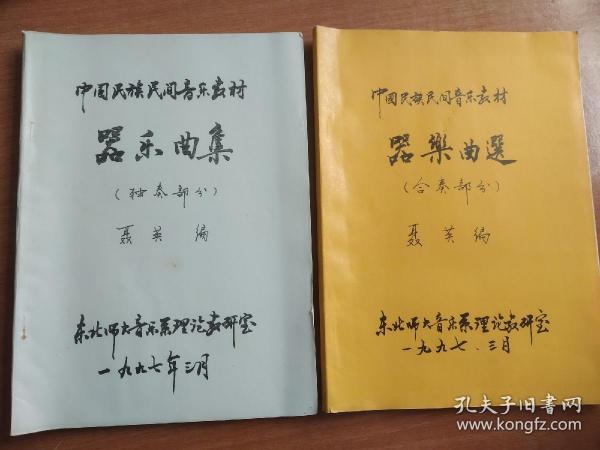 中国民族民间音乐教材
器乐曲集
（独奏部分）
聂英 编
东北师大音乐系理论教研室
一九九七年三月
中国民族民间音乐教材
器樂曲選
（合奏部分）
聂英 编
东北师大音乐系理论教研室
一九九七.三月
孔夫子旧书网
www.kongfz.com